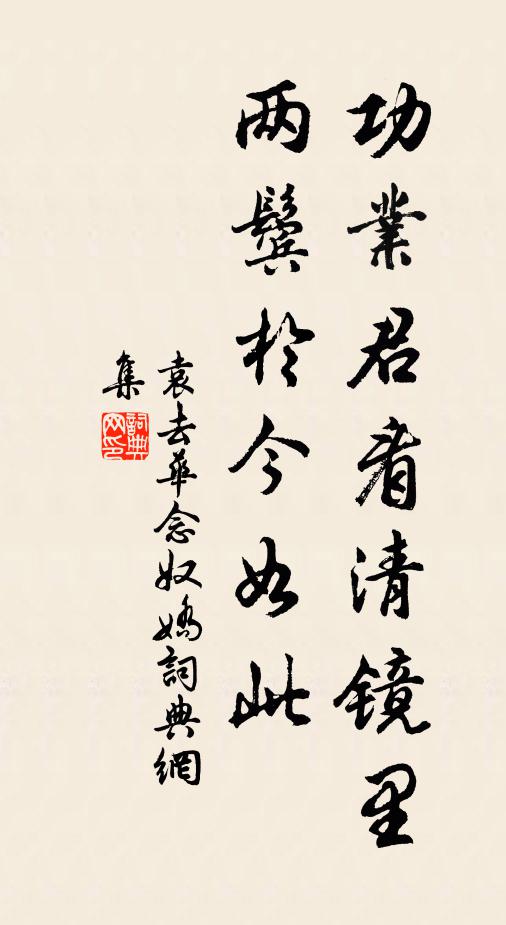 功業君看清鏡里
两鬢於今如此
袁去華念奴嬌詞典網
集
詞典
网印